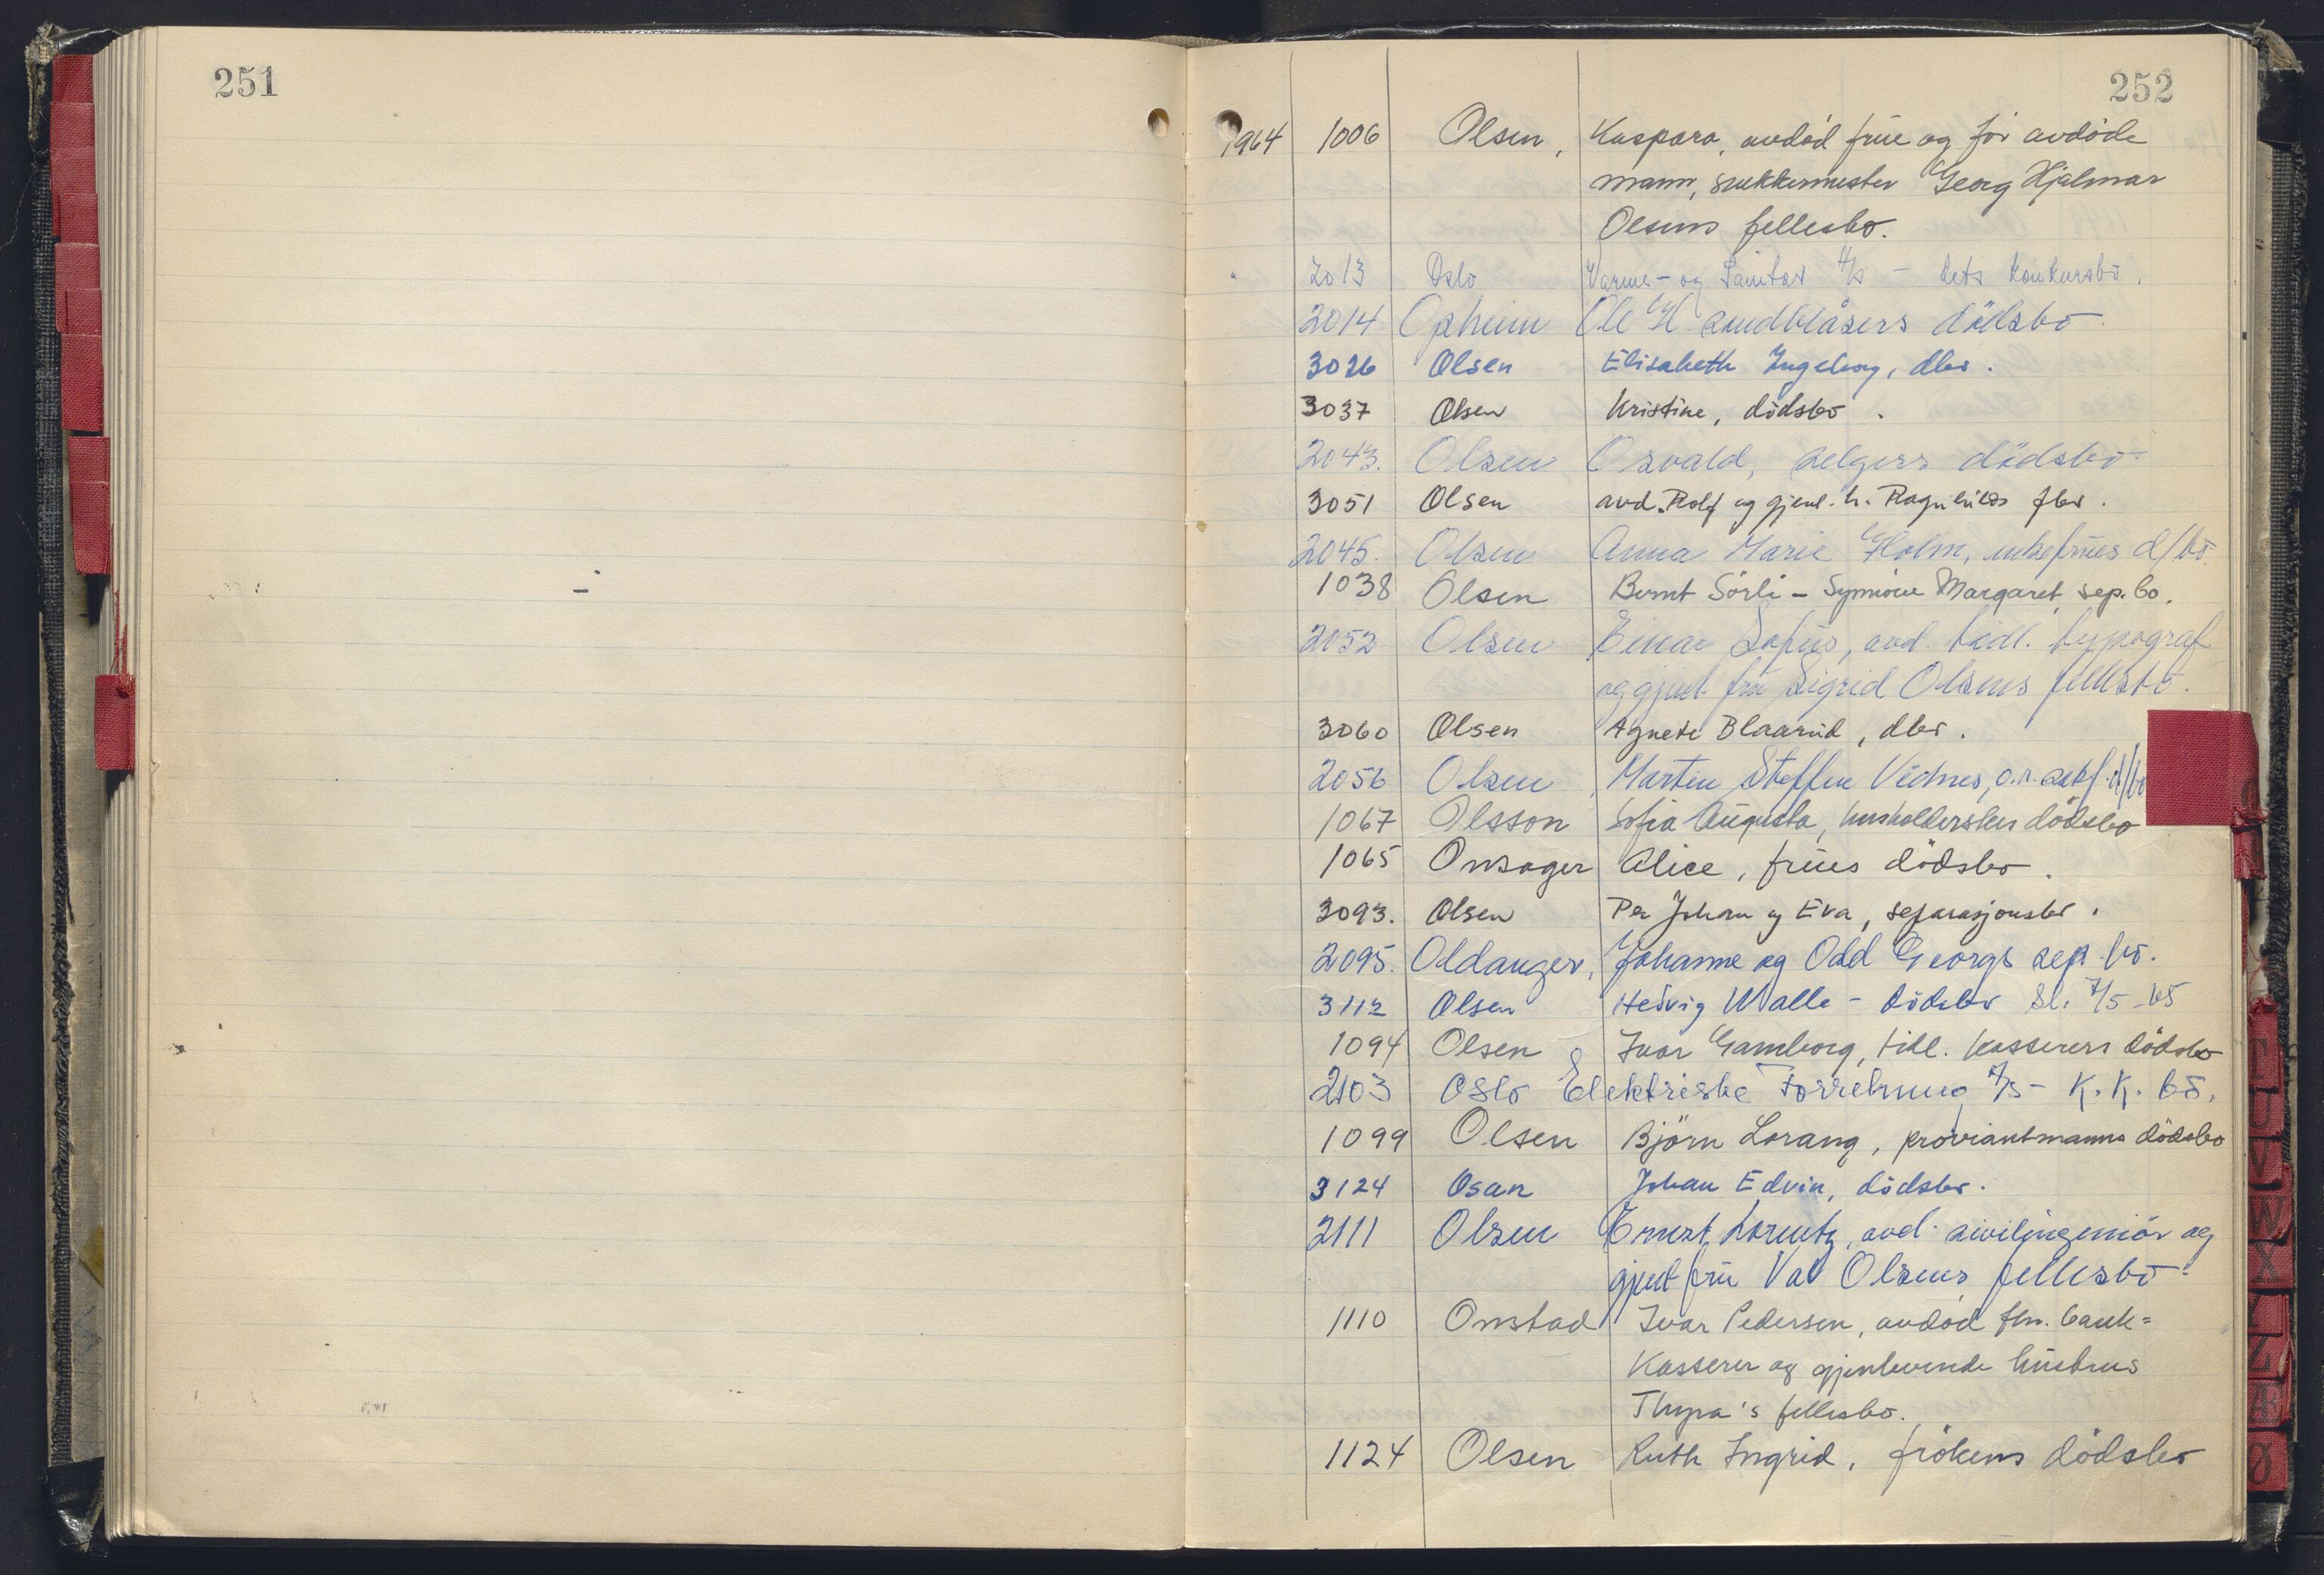 251
252
1964 1006 Olsen, Kaspara, avdød frue og før avdøde
mann, snekkermester Georg Hjalmar
Olsens fellesbo.
" 2013 Oslo Varme- og Sanitær A/S - dets konkursbo.
2014 Opheim Ole H. sandblåsers dödsbo
3026 Olsen Elisabeth Ingeborg, dbo.
3037 Olsen Kristine, dødsbo.
2043. Olsen Osvald, selgers dödsbo
3051 Olsen avd. Rolf og gjenl. h. Ragnhilds fbo.
2045. Olsen Anna Marie Holm, enkefrues d/bo.
1038 Olsen Bernt Sörli - Synnöve Margaret sep. bo.
2052 Olsen Einar Sofus, avd. tidl. typograf
og gjenl. fru Sigrid Olsens fellesbo.
3060 Olsen Agnete Blaarud, dbo.
2056 Olsen Marten Steffen Vidnes, o.r. sakf. d/bo
1067 Olsson Sofia Augusta, husholderskes dödsbo
1065 Onsager Alice, frues dödsbo.
3093. Olsen Per Johan og Eva, separasjonsbo.
2095. Oldanger, Johanne og Odd Georgs sep. bo.
3112 Olsen Hedvig Walle - dödsbo sl. 7/5-65
1094 Olsen Ivar Gamborg, tidl. kasserers dödsbo
2103 Oslo Elektriske Forretning A/S - K.K. bo.
1099 Olsen Björn Lorang, proviantmanns dödsbo
3124 Osan Johan Edvin, dödsbo.
2111 Olsen Ernst Lorentz, avd. sivilingeniör og
gjenl. fru Val Olsens fellesbo.
1110 Onstad Ivar Pedersen, avdød fhv. bank=
kasserer og gjenlevende hustrus
Thyra's fellesbo.
1124 Olsen Ruth Ingrid, frökens dödsbo
T
U
V
W
X
Y
Z
Æ
Ø